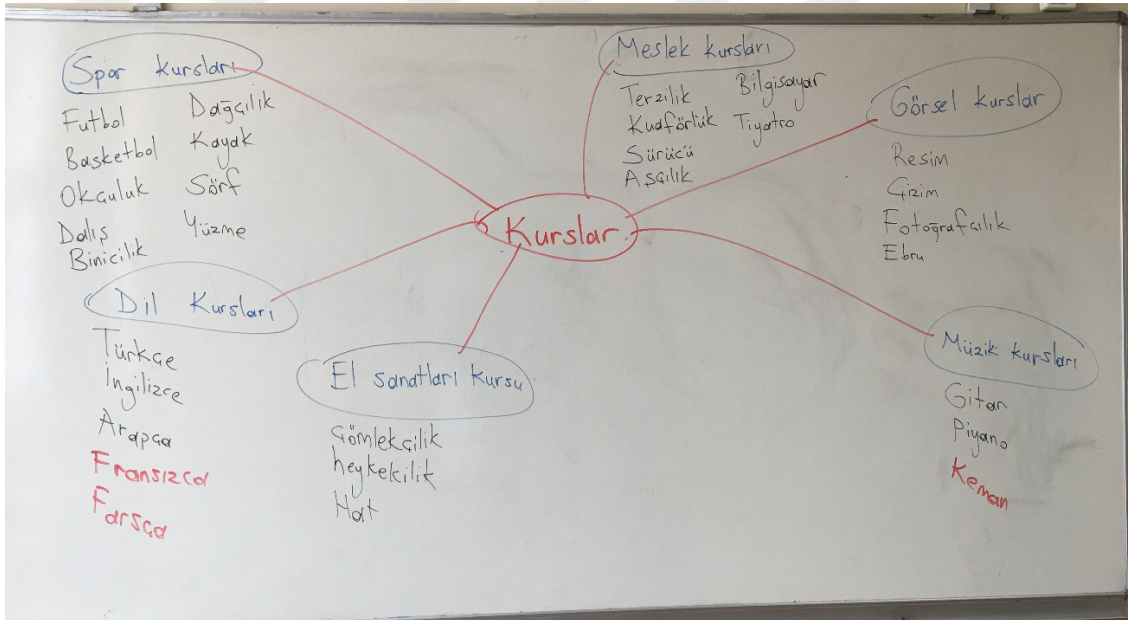 Kurslar
Spor kursları
Futbol
Basketbol
Okçuluk
Dalış
Binicilik
Dağcılık
Kayak
Sörf
Yüzme
Meslek kursları
Terzilik
Kuaförlük
Sürücü
Aşçılık
Bilgisayar
Tiyatro
Görsel kurslar
Resim
Çizim
Fotoğrafçılık
Ebru
Dil Kursları
Türkçe
İngilizce
Arapça
Fransızca
Farsça
El sanatları kursu
Çömlekçilik
heykekilik
Hat
Müzik kursları
Gitar
Piyano
Keman